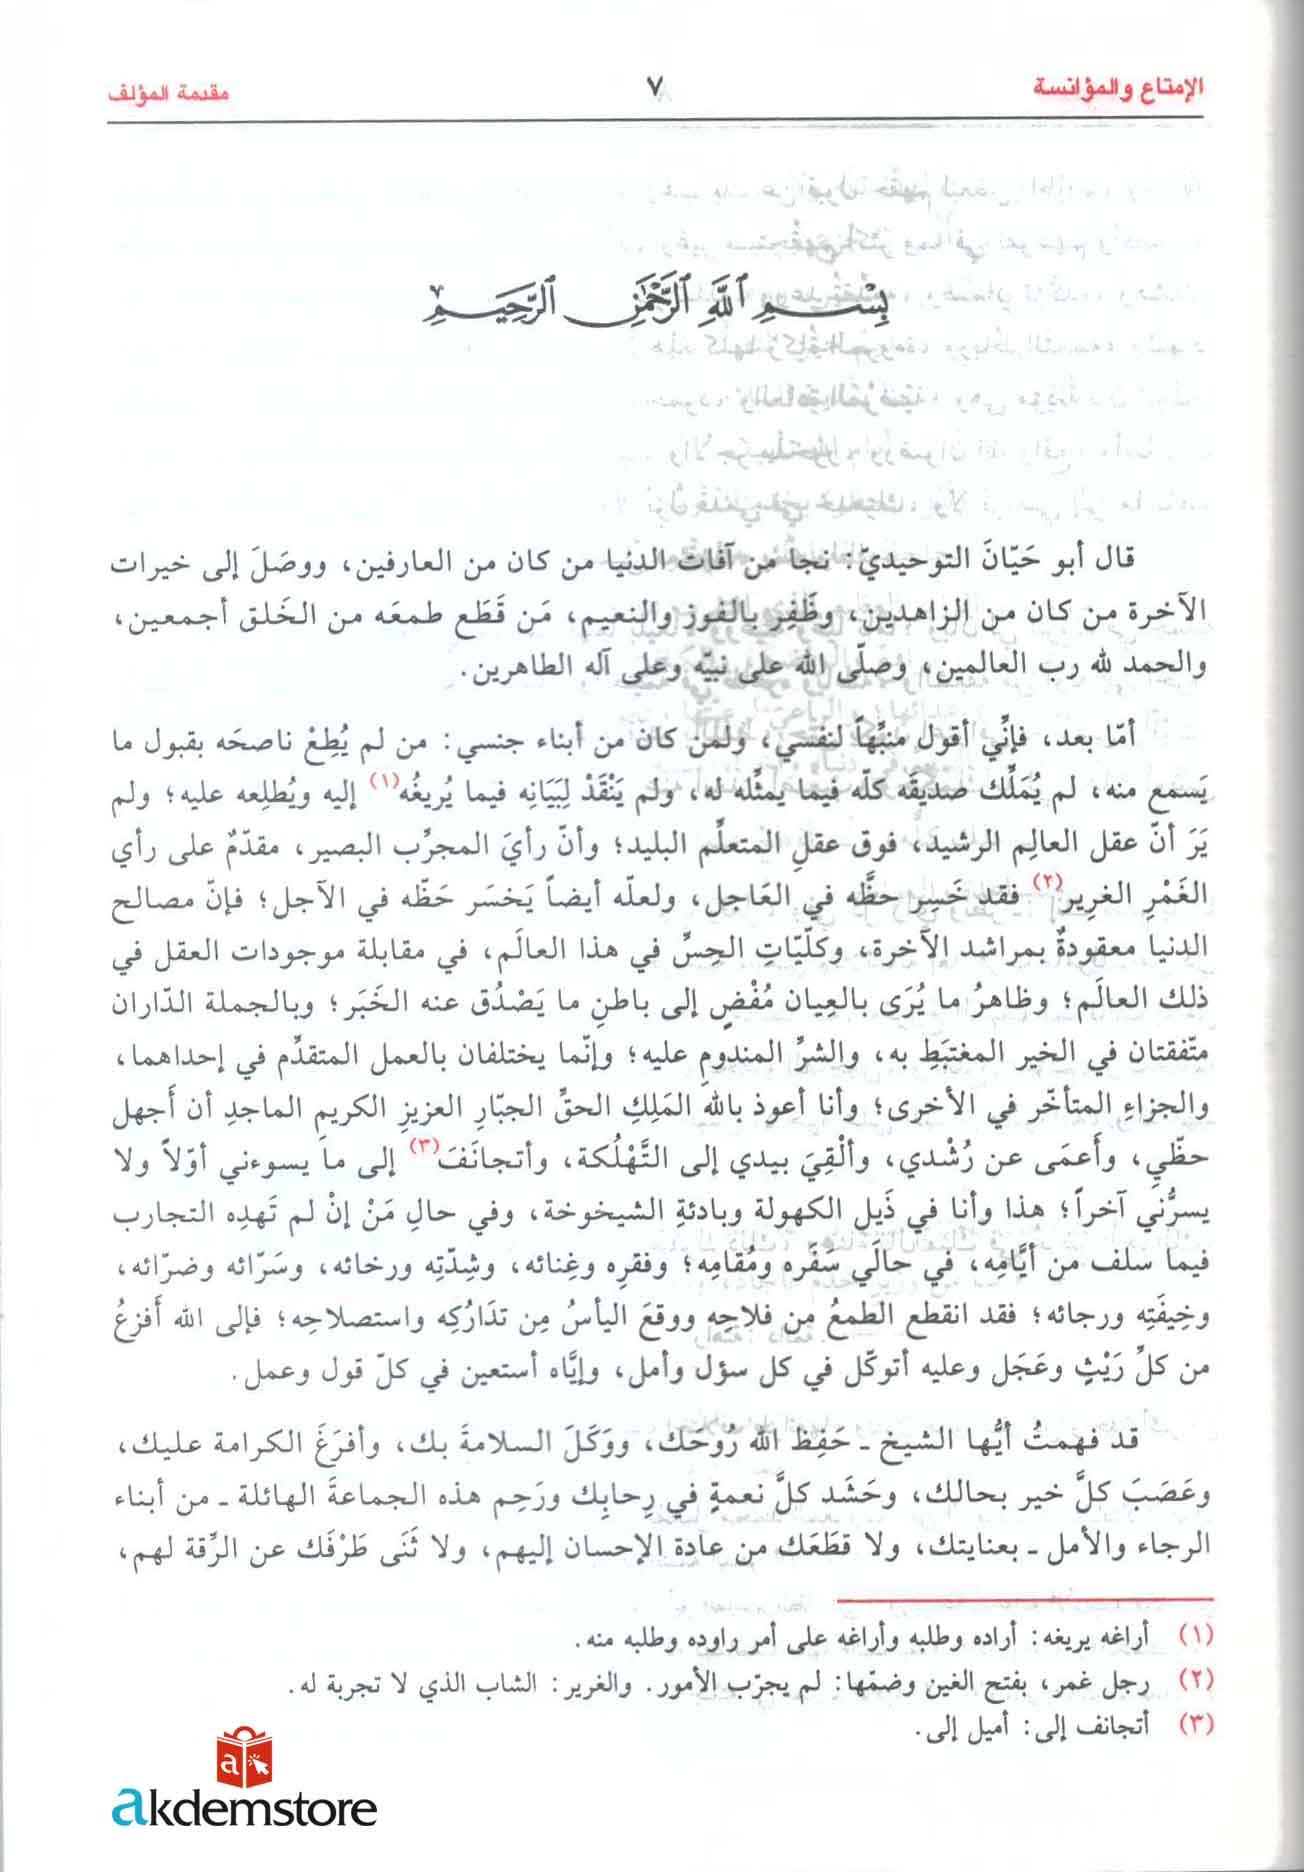 الإمتاع والمؤانسة ٧ مقدمة المؤلف
بِسْمِ ٱللَّهِ ٱلرَّحْمَٰنِ ٱلرَّحِيمِ
قال أبو حَيّانَ التوحيديّ: نجا من آفات الدنيا من كان من العارفين، ووصَلَ إلى خيرات
الآخرة من كان من الزاهدين، وظَفِر بالفوز والنعيم، مَن قَطَع طمعَه من الخَلق أجمعين،
والحمد لله رب العالمين، وصلّى الله على نبيّه وعلى آله الطاهرين.
أمّا بعد، فإنِّي أقول منبِّهاً لنفسي، ولمن كان من أبناء جنسي: من لم يُطِعْ ناصحَه بقبول ما
يَسمع منه، لم يُمَلِّك صديقَه كلّه فيما يمثِّله له، ولم يَنْقَدْ لِبَيَانِه فيما يُرِيغُه(١) إليه ويُطلِعه عليه؛ ولم
يَرَ أنّ عقل العالِم الرشيد، فوق عقلِ المتعلِّم البليد؛ وأنّ رأيَ المجرِّب البصير، مقدّمٌ على رأي
الغَمْرِ الغرِير(٢) فقد خَسِر حظَّه في العَاجل، ولعلّه أيضاً يَخسَر حظّه في الآجل؛ فإنّ مصالح
الدنيا معقودةٌ بمراشد الآخرة، وكلّيّاتِ الحِسِّ في هذا العالَم، في مقابلة موجودات العقل في
ذلك العالَم؛ وظاهرُ ما يُرَى بالعِيان مُفْضٍ إلى باطنِ ما يَصْدُق عنه الخَبَر؛ وبالجملة الدّاران
متّفقتان في الخير المغتبَطِ به، والشرِّ المندومِ عليه؛ وإنّما يختلفان بالعمل المتقدِّم في إحداهما،
والجزاءِ المتأخّر في الأخرى؛ وأنا أعوذ بالله المَلِكِ الحقِّ الجبّارِ العزيزِ الكريمِ الماجدِ أن أَجهل
حظّي، وأَعمَى عن رُشْدي، وألْقِيَ بيدي إلى التَّهْلُكة، وأتجانَفَ(٣) إلى ما يسوءني أوّلاً ولا
يسرُّني آخراً؛ هذا وأنا في ذَيل الكهولة وبادئةِ الشيخوخة، وفي حالِ مَنْ إنْ لم تَهدِه التجارب
فيما سلف من أيَّامِه، في حالَي سَفَره ومُقامِه؛ وفقرِه وغِنائه، وشِدّتِه ورخائه، وسَرّائه وضرّائه،
وخِيفَتِه ورجائه؛ فقد انقطع الطمعُ من فلاحِه ووقعَ اليأسُ مِن تدَارُكِه واستصلاحِه؛ فإلى الله أَفزعُ
من كلِّ رَيْثٍ وعَجَل وعليه أتوكّل في كل سؤل وأمل، وإيَّاه أستعين في كلّ قول وعمل.
قد فهمتُ أيُّها الشيخ ـ حَفِظ الله رُوحَك، ووَكَلَ السلامةَ بك، وأفرَغَ الكرامة عليك،
وعَصَبَ كلَّ خير بحالك، وحَشَد كلَّ نعمةٍ في رِحابِك ورَحِم هذه الجماعةَ الهائلة ـ من أبناء
الرجاء والأمل ـ بعنايتك، ولا قطَعَك من عادة الإحسان إليهم، ولا ثَنَى طَرْفَك عن الرِّقة لهم،
(١) أراغه يريغه: أراده وطلبه وأراغه على أمر راوده وطلبه منه.
(٢) رجل غمر، بفتح الغين وضمّها: لم يجرّب الأمور. والغرير: الشاب الذي لا تجربة له.
(٣) أتجانف إلى: أميل إلى.
a
akdemstore